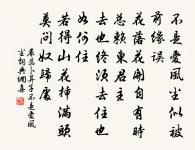 不是愛風塵似被
前緣誤
花落花開自有時
總賴東君主
去也終須去住也
如何住
若得山花插滿頭
莫問奴歸處
嚴蕊卜算子不是愛風
塵詞典網集